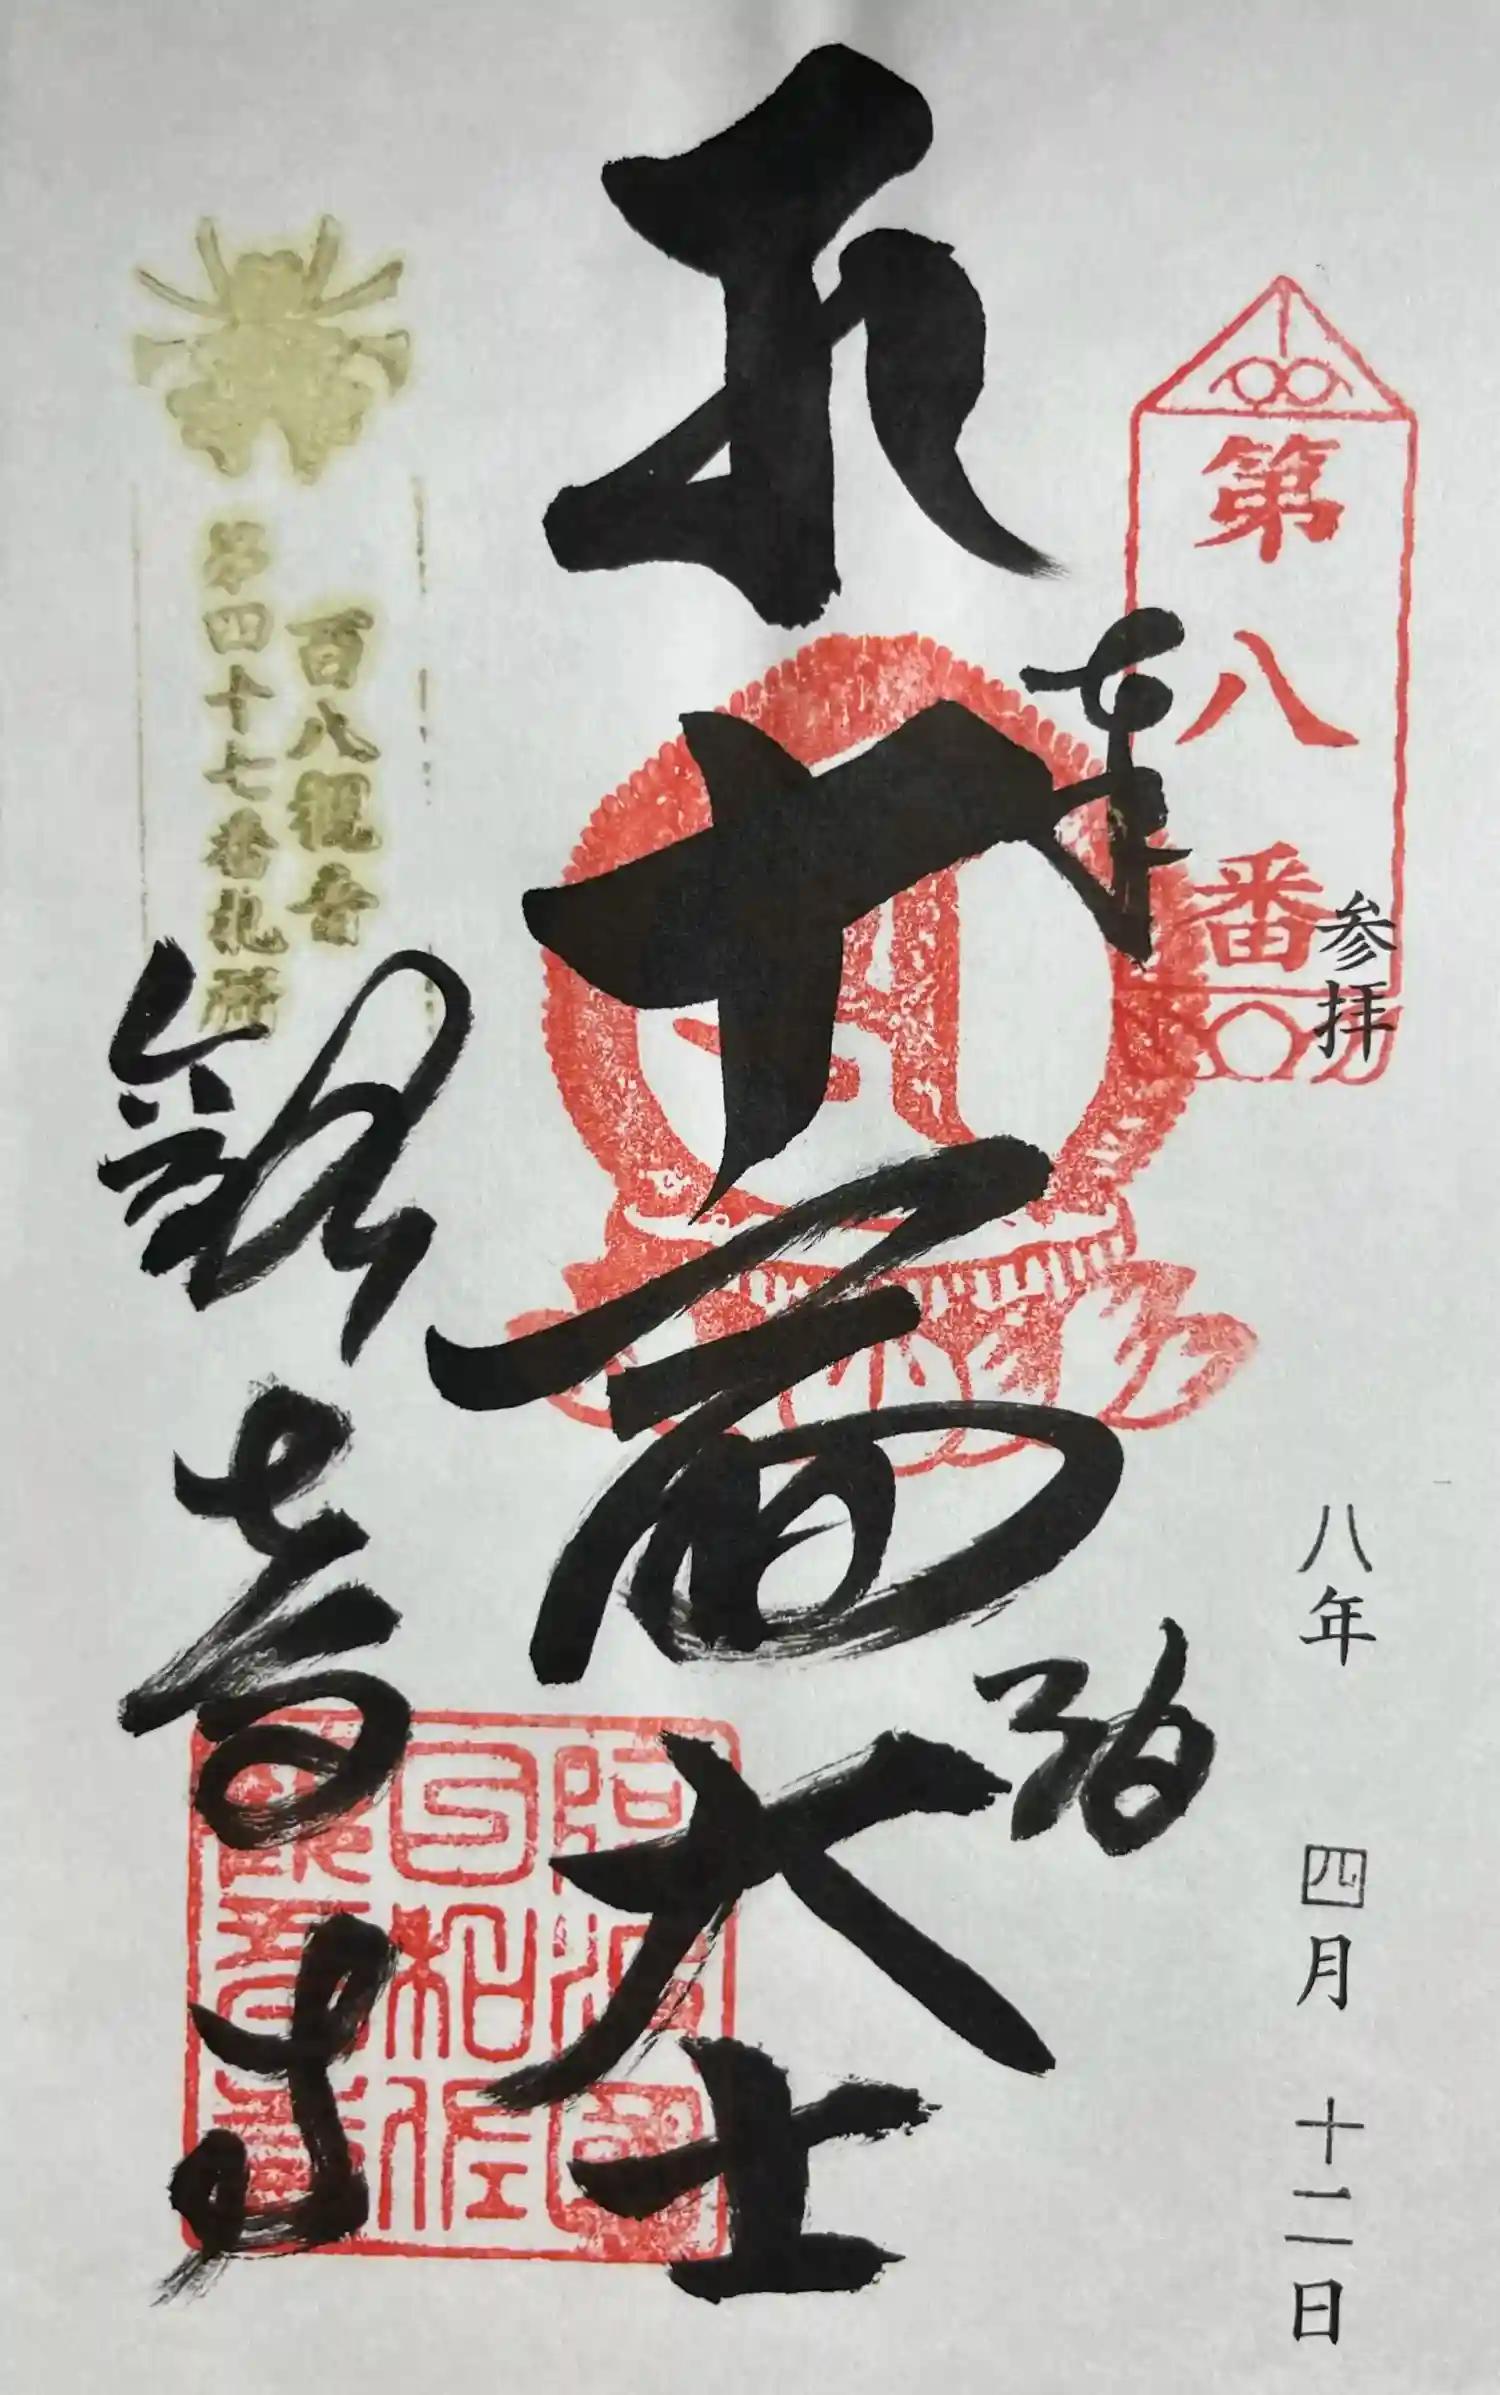 第八番
参拝
八年 四月 十二日
奉
十一面大士
百八観音
第四十七番札所
観音寺
阿波国
日和佐
観音寺